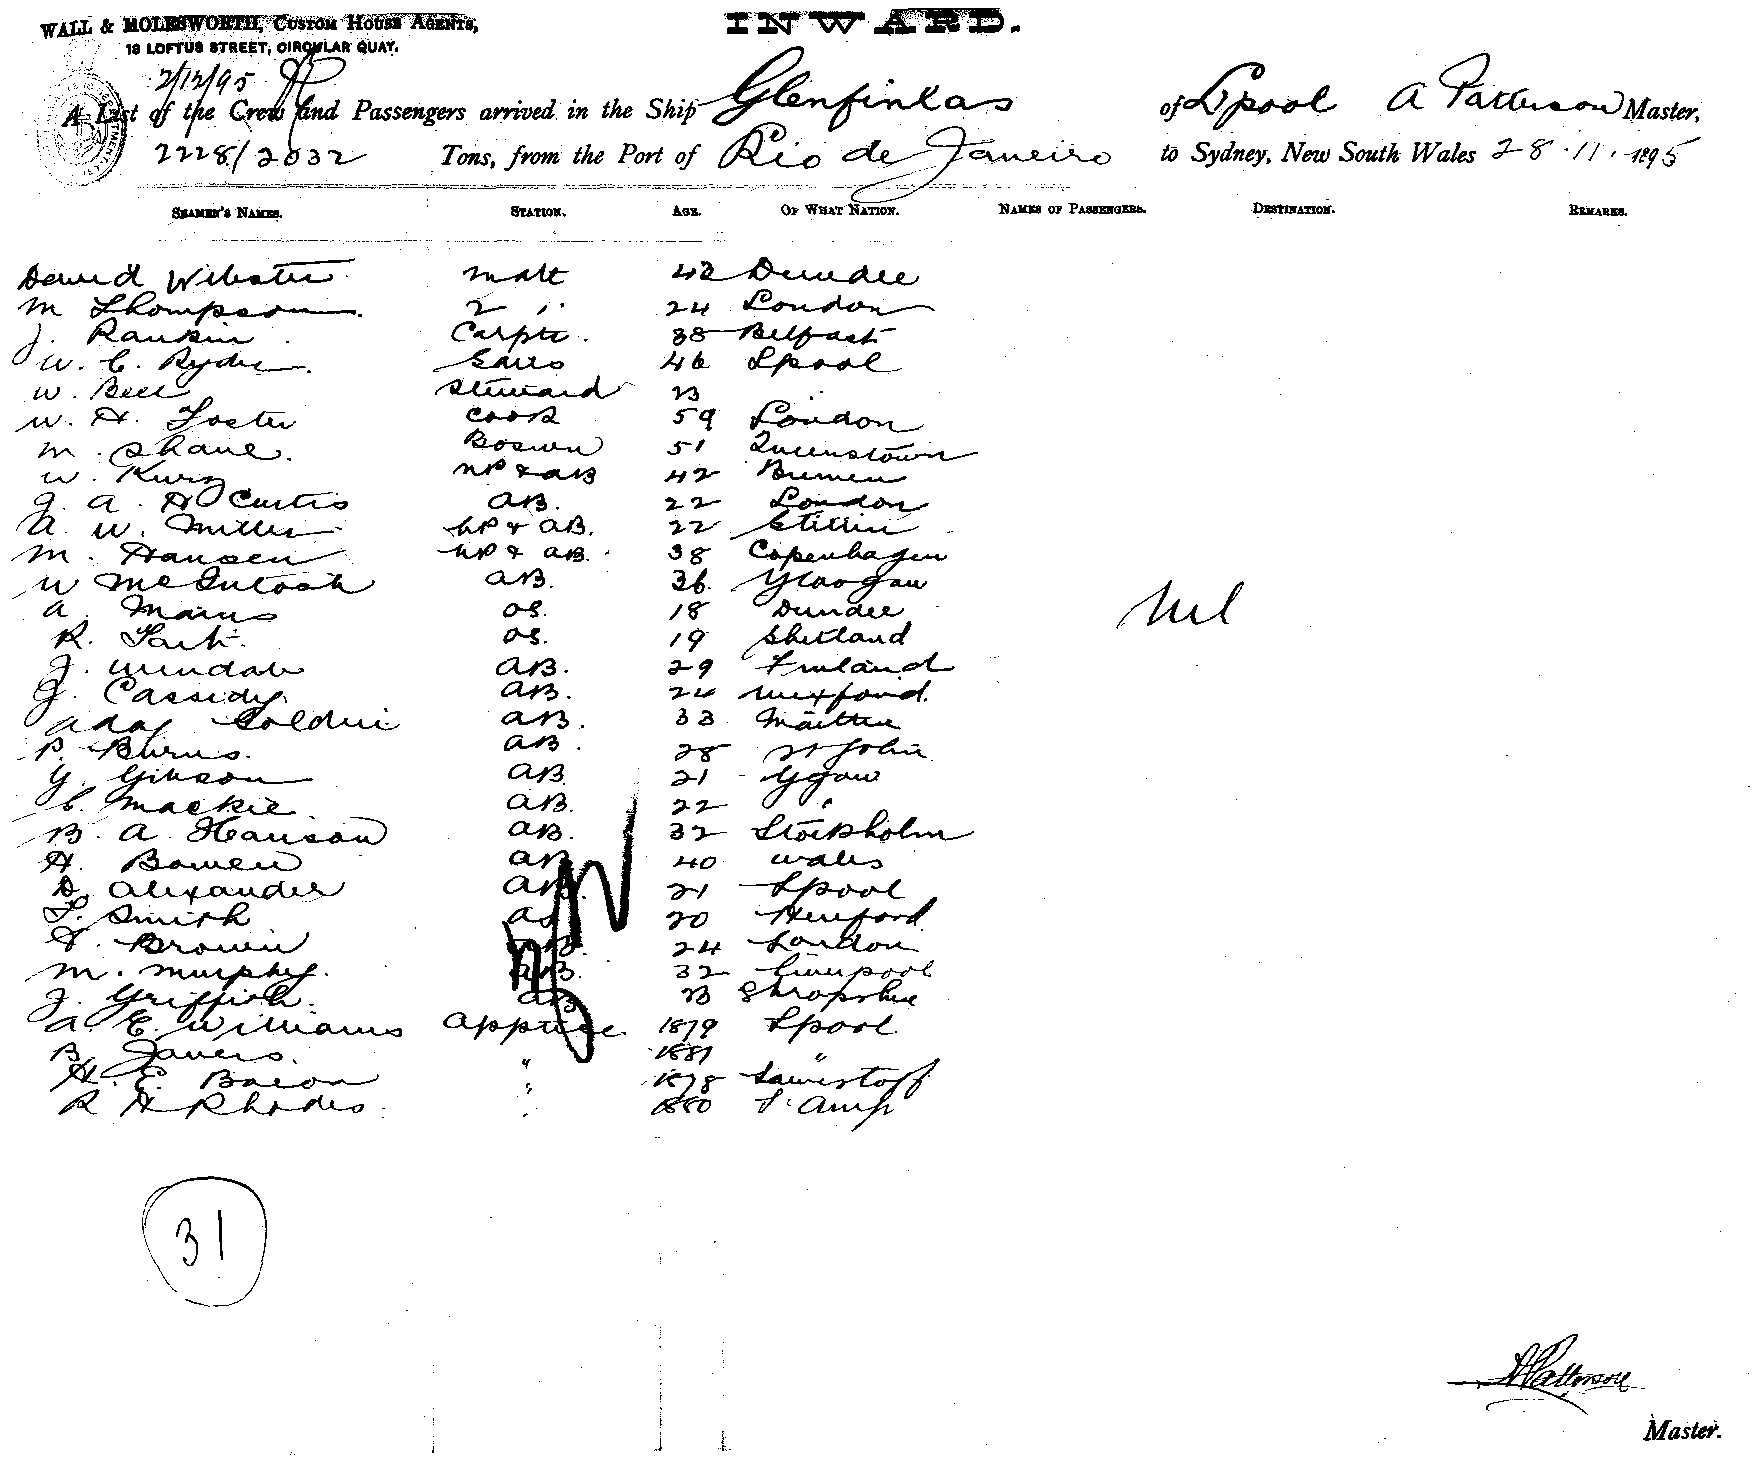 WALL & MOLESWORTH, CUSTOM HOUSE AGENTS,
18 LOFTUS STREET, CIRCULAR QUAY.
INWARD.
2/12/95
A List of the Crew and Passengers arrived in the Ship Glenfinlas of Lpool A Patterson Master,
2228/2032 Tons, from the Port of Rio de Janeiro to Sydney, New South Wales 28.11.1895
SEAMEN'S NAMES. STATION. AGE. OF WHAT NATION. NAMES OF PASSENGERS. DESTINATION. REMARKS.
David Webster mate 42 Dundee
M Thompson 2 " 24 London
J. Rankin Carptr. 38 Belfast
W. C. Ryder Sails 46 Lpool
W. Bell Steward 23 "
W. H. Foster Cook 59 London
M. Shane. Boswn 51 Queenstown
W. Kurz 42 Bremen
J. A. H Curtis AB. 22 London
A. W. Miller & AB. 22 Stettin
M. Hansen & AB. 38 Copenhagen
W McIntosh AB. 36 Glasgow
A. Mains OS. 18 Dundee
R. OS. 19 Shetland
J. AB. 29 Finland
J. Cassidy. AB. 24 Wexford.
AB. 33
P. Burns. AB. 28 St John
G. Gibson AB 21 Ggow
C. Mackie. AB. 22 "
B. A. Hanson AB. 32 Stockholm
H. Bowen AB 40 Wales
D. Alexander AB. 21 Lpool
T. Smith 20 Hereford
T. Brown AB. 24 London
M. Murphy. AB. 32 Liverpool
J. Griffith. AB 23 Shropshire
A. E. Williams Apptice 1879 Lpool
B. " 1881 "
H. E. Bacon " 1878 Lowerstoff
R H Rhodes. " 1880 S. Amp
Nil
31
A Patterson
Master.